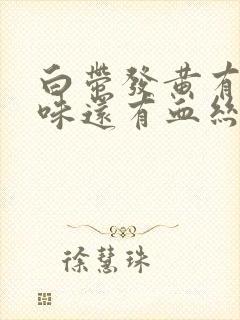 白帶發黃有
味還有血絲
徐慧珠